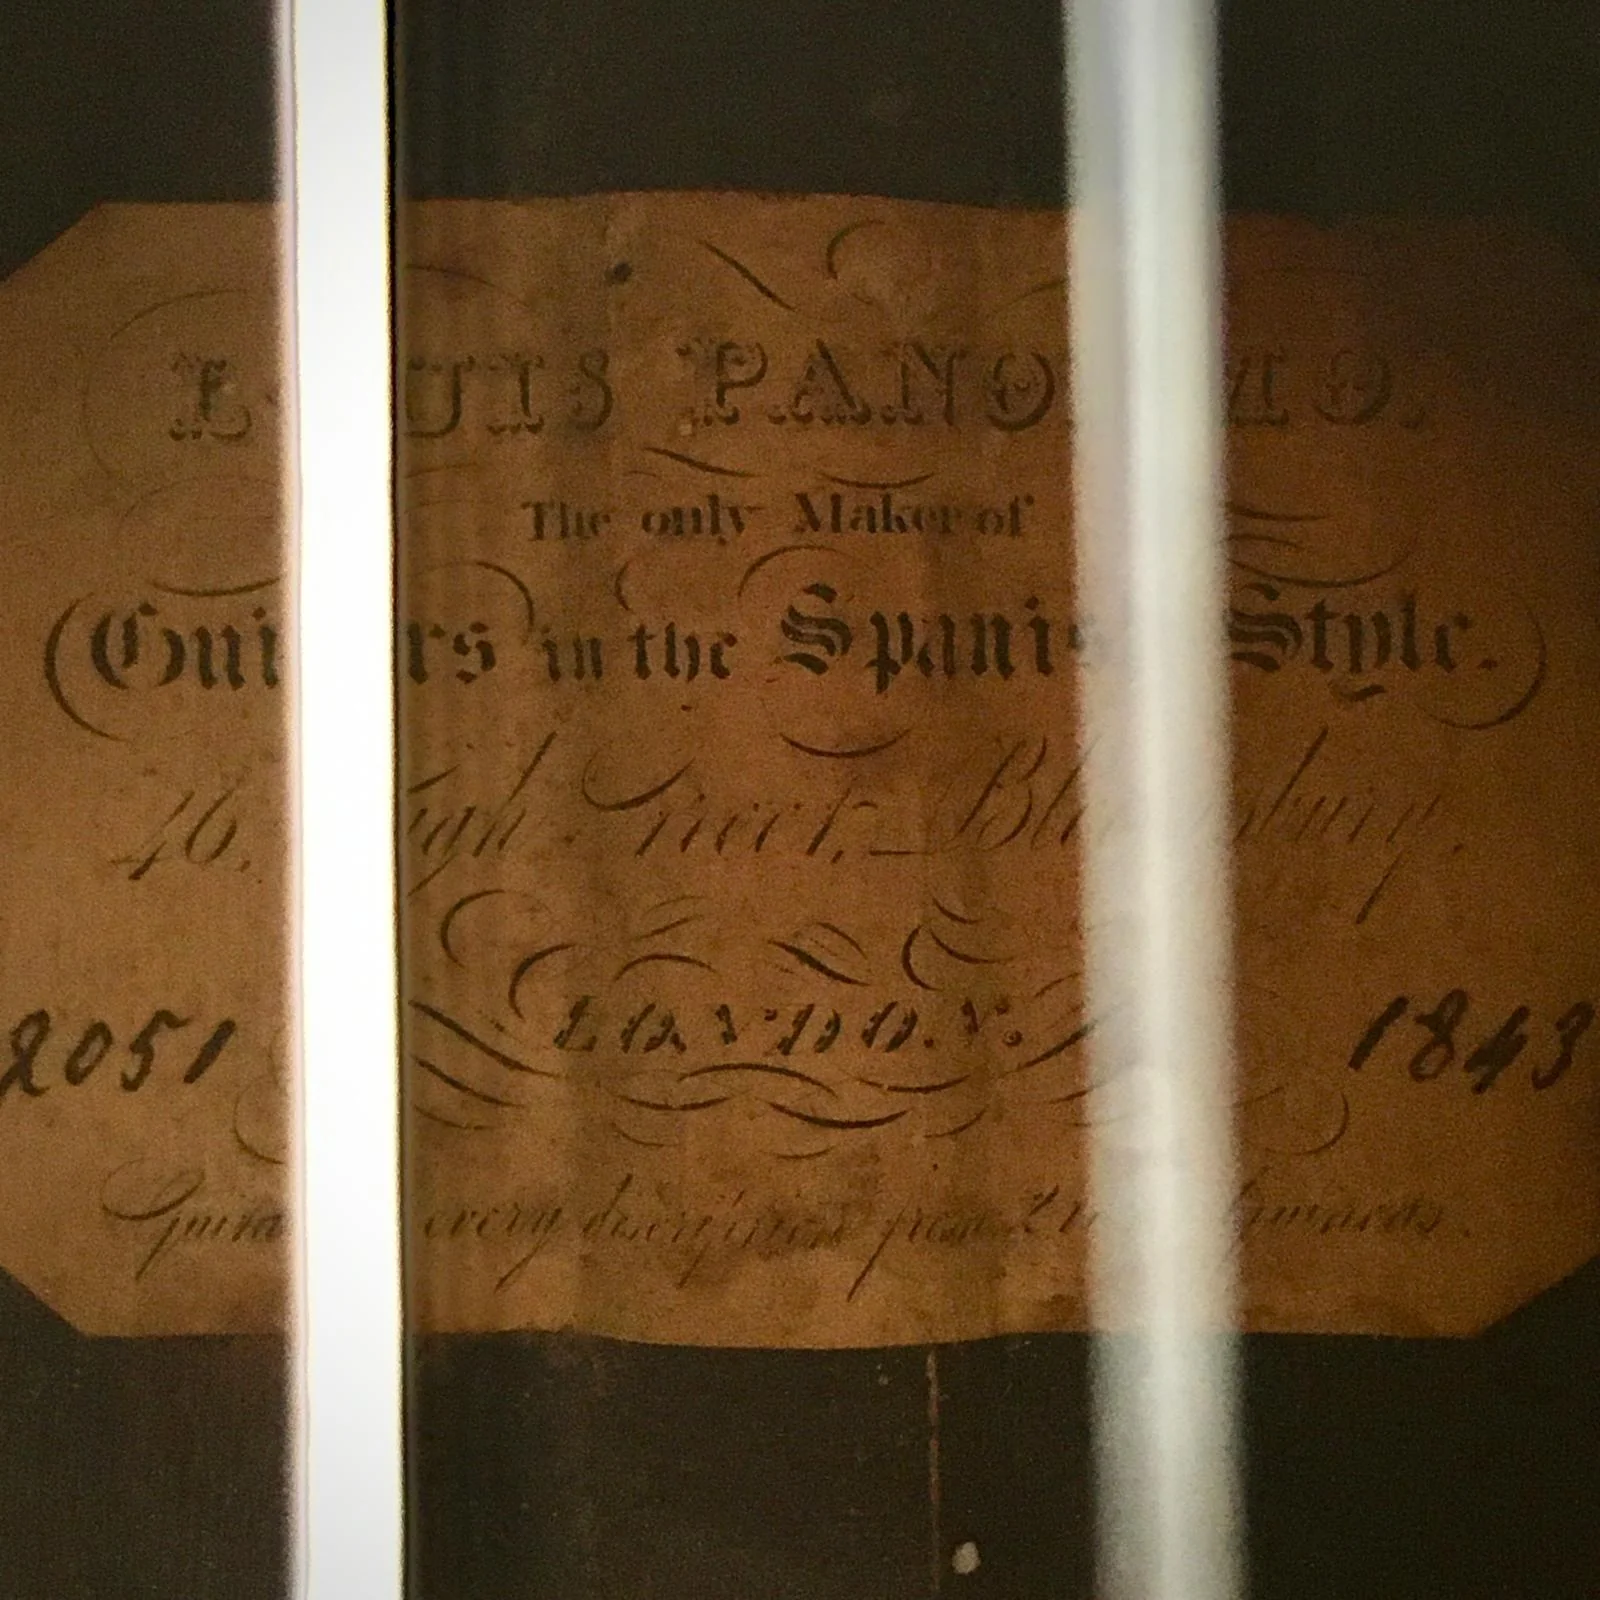 LOUIS PANORMO.
The only Maker of
Guitars in the Spanish Style.
46. High Street, Bloomsbury.
2051 LONDON. 1843
Guitars every description from 2 to Guineas.